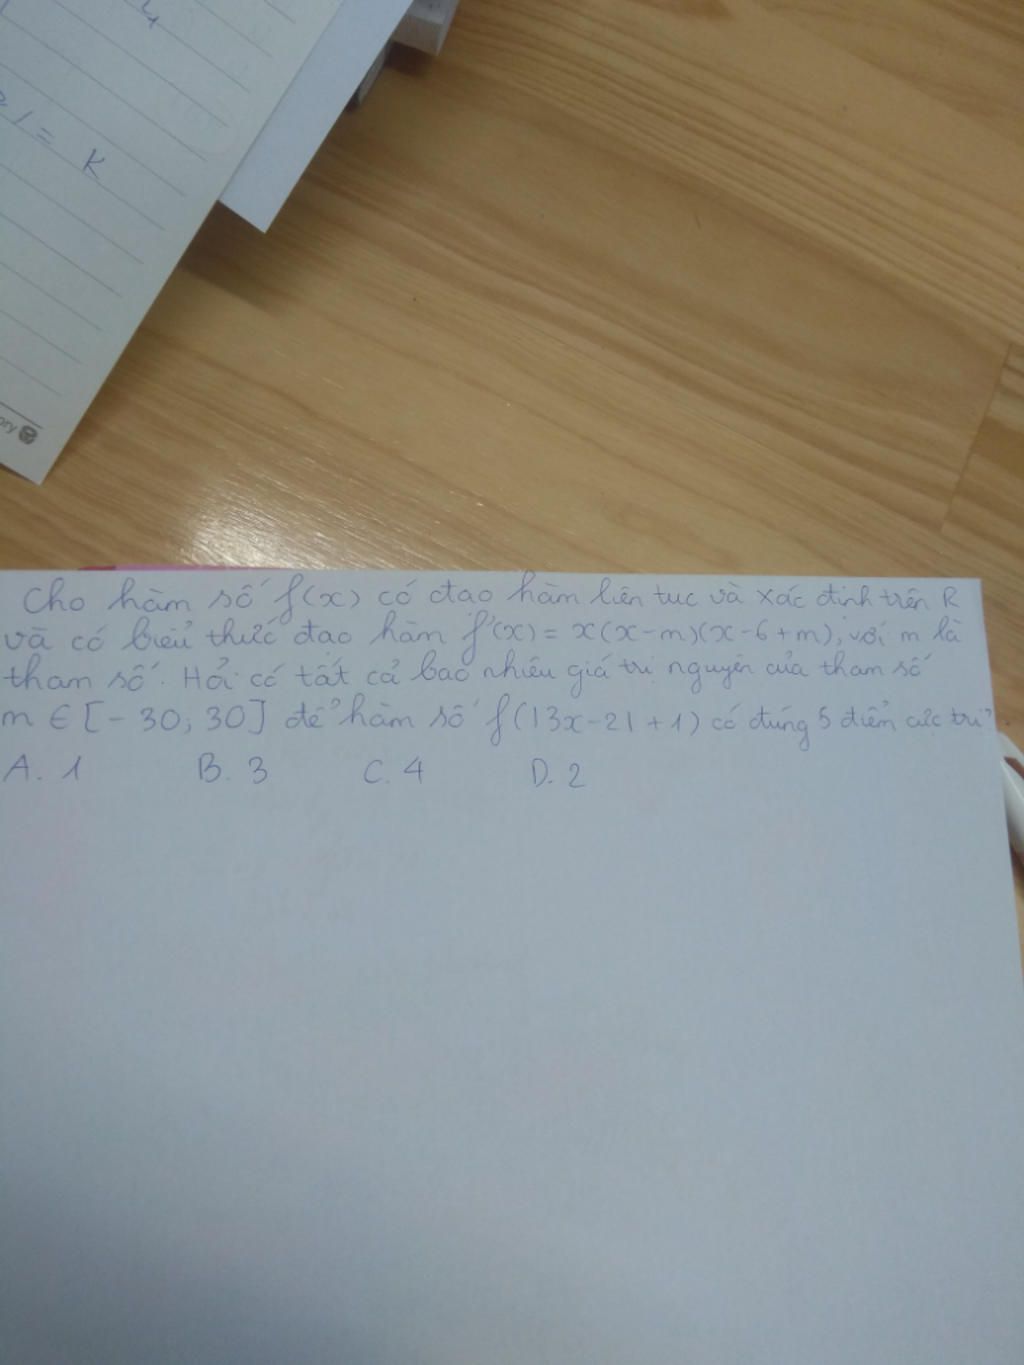 4
2/ = K
ory
Cho hàm số f(x) có đạo hàm liên tục và xác định trên R
và có biểu thức đạo hàm f'(x) = x(x-m)(x-6+m), với m là
tham số. Hỏi có tất cả bao nhiêu giá trị nguyên của tham số
m ∈ [-30; 30] để hàm số f(|3x-2|+1) có đúng 5 điểm cực trị?
A. 1 B. 3 C. 4 D. 2